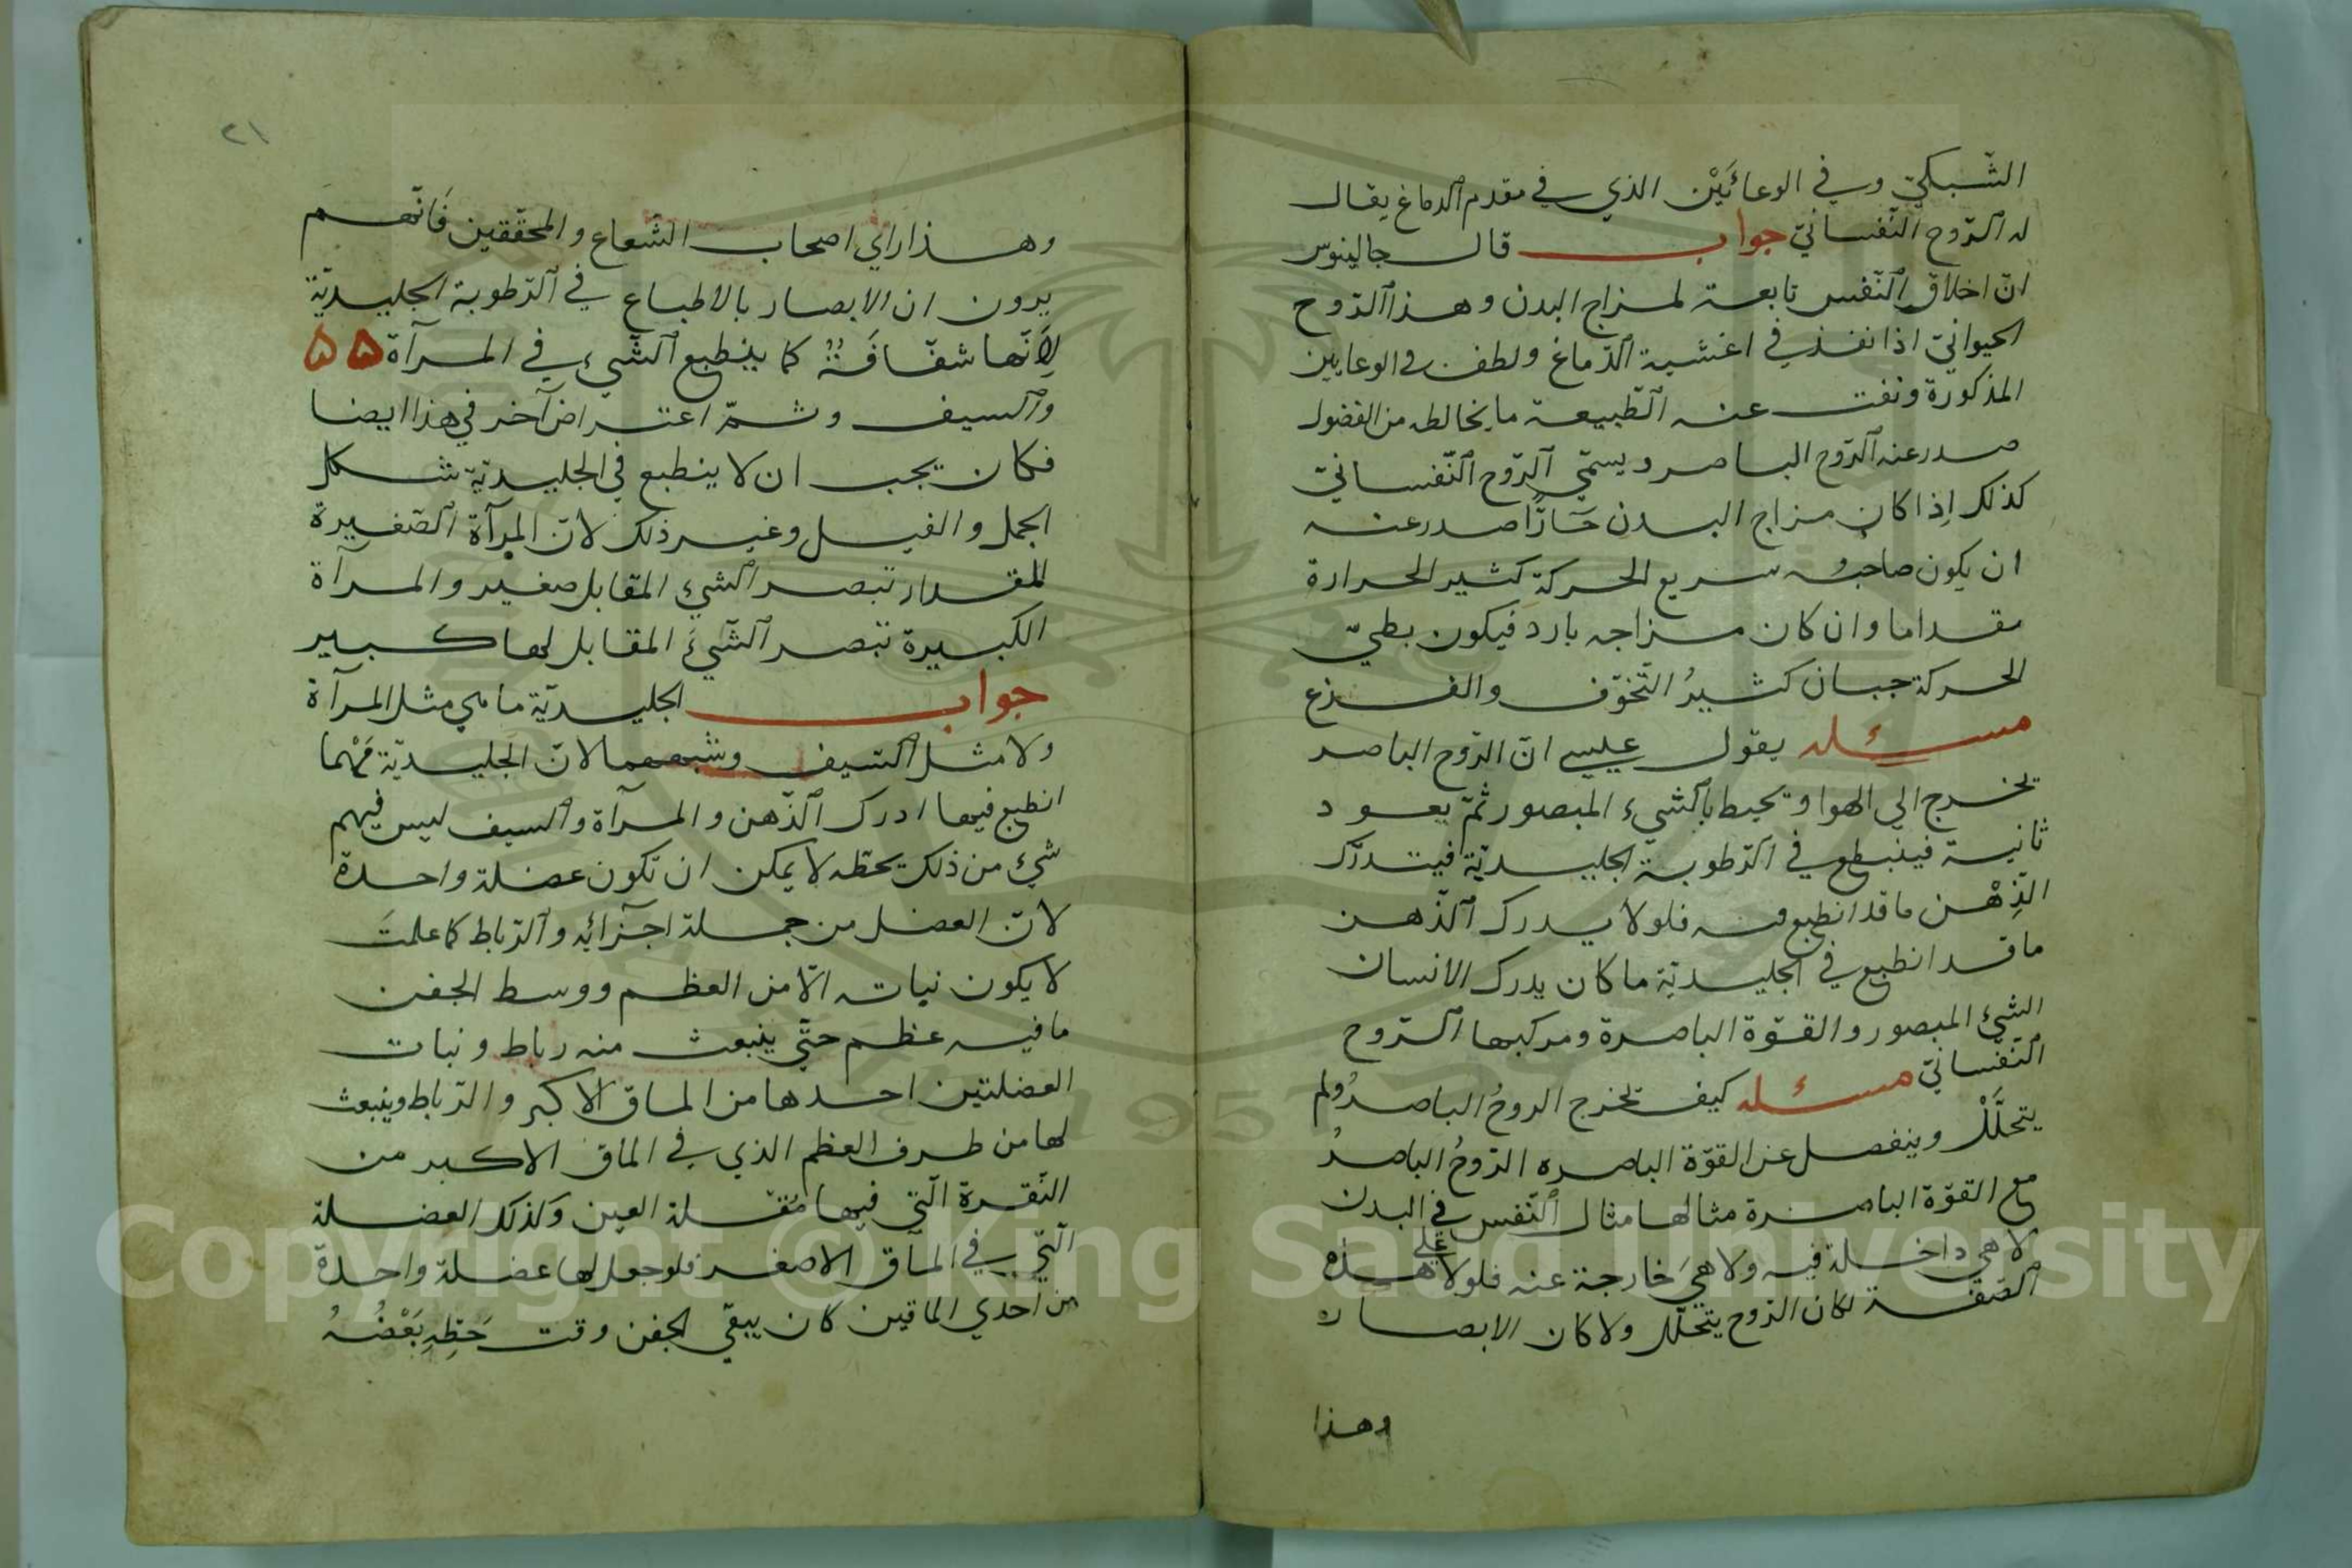 الشّبكيّ وفي الوعائَيْن الذي في مقدم الدماغ يقال
له الرّوح النّفسانيّ جواب قال جالينوس
انّ اخلاق النّفس تابعة لمزاج البدن وهذا الرّوح
الحيوانيّ اذا نفذ في اغشية الدّماغ ولطف في الوعايين
المذكورة ونفت عنه الطّبيعة ما يخالطه من الفضول
صدر عنه الرّوح الباصر ويسمّي الرّوح النّفسانيّ
كذلك اِذا كان مزاج البدن حَارًّا صدر عنه
ان يكون صاحبُه سريع الحركة كثير الحرارة
مقداما وان كان مزاجه بارد فيكون بطيّ
الحركة جبان كثيرُ التّخوّف والفزع
مسئله يقول عليسي انّ الرّوح الباصر
يخرج الي الهوا ويحيط بالشّيء المبصور ثمّ يعود
ثانية فينبطع في الرّطوبة الجليديّة فيتدرّك
الذِّهْن ما قد انطبع منه فلولا يدرك الذّهن
ما قد انطبع في الجليديّة ما كان يدرك الانسان
الشّيء المبصور والقوّة الباصرة ومركبها الرّوح
النّفسانيّ مسئله كيف يخرج الروحُ الباصرُ ولم
يتحلَّلْ وينفصل عن القوّة الباصره الرّوحُ الباصرُ
مع القوّة الباصرة مثالها مثال النّفس في البدن
لا هي داخلة فيه ولا هيَ خارجة عنه فلولا علي هذه
الصّفة لكان الرّوح يتحلّل ولا كان الابصار
وهذا
٢١
وهذا راي اصحاب الشّعاع والمحقّقين فَانّهم
يرون ان الابصار بالاطباع في الرّطوبة الجليديّة
لِاَنّها شفّافَةٌ كما ينطبع الشّيء في المرآة ۵۵
والسيف وثمّ اعتراض آخر في هذا ايضا
فكان يجب ان لا ينطبع في الجليديّة شكل
الجمل والفيل وغير ذلك لانّ المرآة الصّغيرة
المقدار تبصر الشيء المقابل صغير والمرآة
الكبيرة تبصر الشّيءَ المقابل لها كبير
جواب الجليديّة ما هي مثل المرآة
ولا مثل السّيف وشبههما لانّ الجليديّة مَهْما
انطبع فيها ادرك الذّهن والمرآة والسيف ليس فيهم
شيء من ذلك يحطّه لا يمكن ان تكون عضلة واحدة
لانّ العضل من جملة اجزائِه والرّباط كما علمتَ
لا يكون نباته الّا من العظم ووسط الجفن
ما فيه عظم حتّي ينبعث منه رباط ونبات
العضلتين احدها من الماق الاكبر والرّباط وينبعث
لها من طرف العظم الذي في الماق الاكبر من
النّقرة الّتي فيها مُقلة العين وكذلك العضلة
الّتي في المآق الاصغر فلو جعل لها عضلة واحدة
من احدي الماقين كان يبقّي الجفن وقت حَطِّهِ بَعْضُهُ